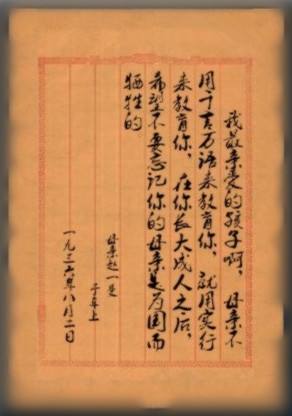 我最亲爱的孩子啊，母亲不
用千言万语来教育你，就用实行
来教育你，在你长大成人之后，
希望不要忘记你的母亲是为国而
牺牲的
母亲赵一曼
于车上
一九三六年八月二日